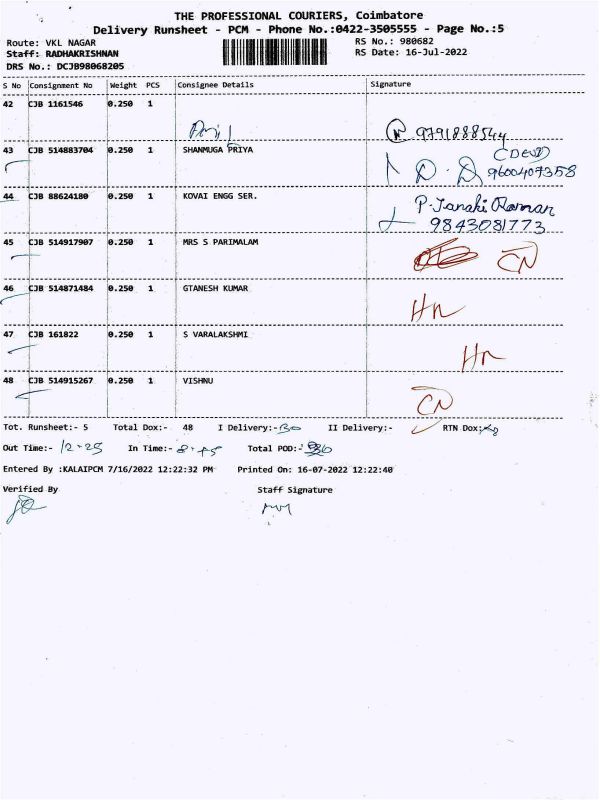 THE PROFESSIONAL COURIERS, Coimbatore
Delivery Runsheet - PCM - Phone No.:0422-3505555 - Page No.:5
Route: VKL NAGAR RS No.: 980682
Staff: RADHAKRISHNAN RS Date: 16-Jul-2022
DRS No.: DCJB98068205
S No Consignment No Weight PCS Consignee Details Signature
42 CJB 1161546 0.250 1
9791888544
43 CJB 514883704 0.250 1 SHANMUGA PRIYA
9600407358
44 CJB 88624180 0.250 1 KOVAI ENGG SER. P. Janaki Raman
9843081773
45 CJB 514917907 0.250 1 MRS S PARIMALAM CN
46 CJB 514871484 0.250 1 GTANESH KUMAR
47 CJB 161822 0.250 1 S VARALAKSHMI
48 CJB 514915267 0.250 1 VISHNU CN
Tot. Runsheet:- 5 Total Dox:- 48 I Delivery:- II Delivery:- RTN Dox:-
Out Time:- 12-25 In Time:- Total POD:-
Entered By :KALAIPCM 7/16/2022 12:22:32 PM Printed On: 16-07-2022 12:22:40
Verified By Staff Signature